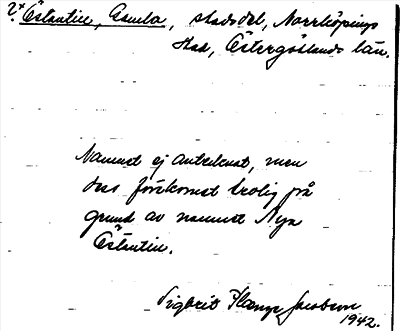 Östantill, Gamla, stadsdel, Norrköpings
stad, Östergötlands län.
Namnet ej antecknat, men
dess förekomst trolig på
grund av namnet Nya
Östantill.
Sigbrit Plænge Jacobson
1942.